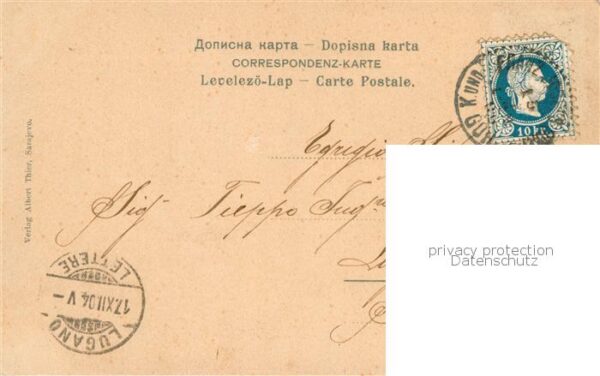 Дописна карта – Dopisna karta
CORRESPONDENZ-KARTE
Levelező-Lap – Carte Postale.
10 Kr.
K UND K
Verlag Albert Thier, Sarajevo.
Egregio
Sig. Tieppo
privacy protection
Datenschutz
LETTERE
17.XII.04 V
LUGANO